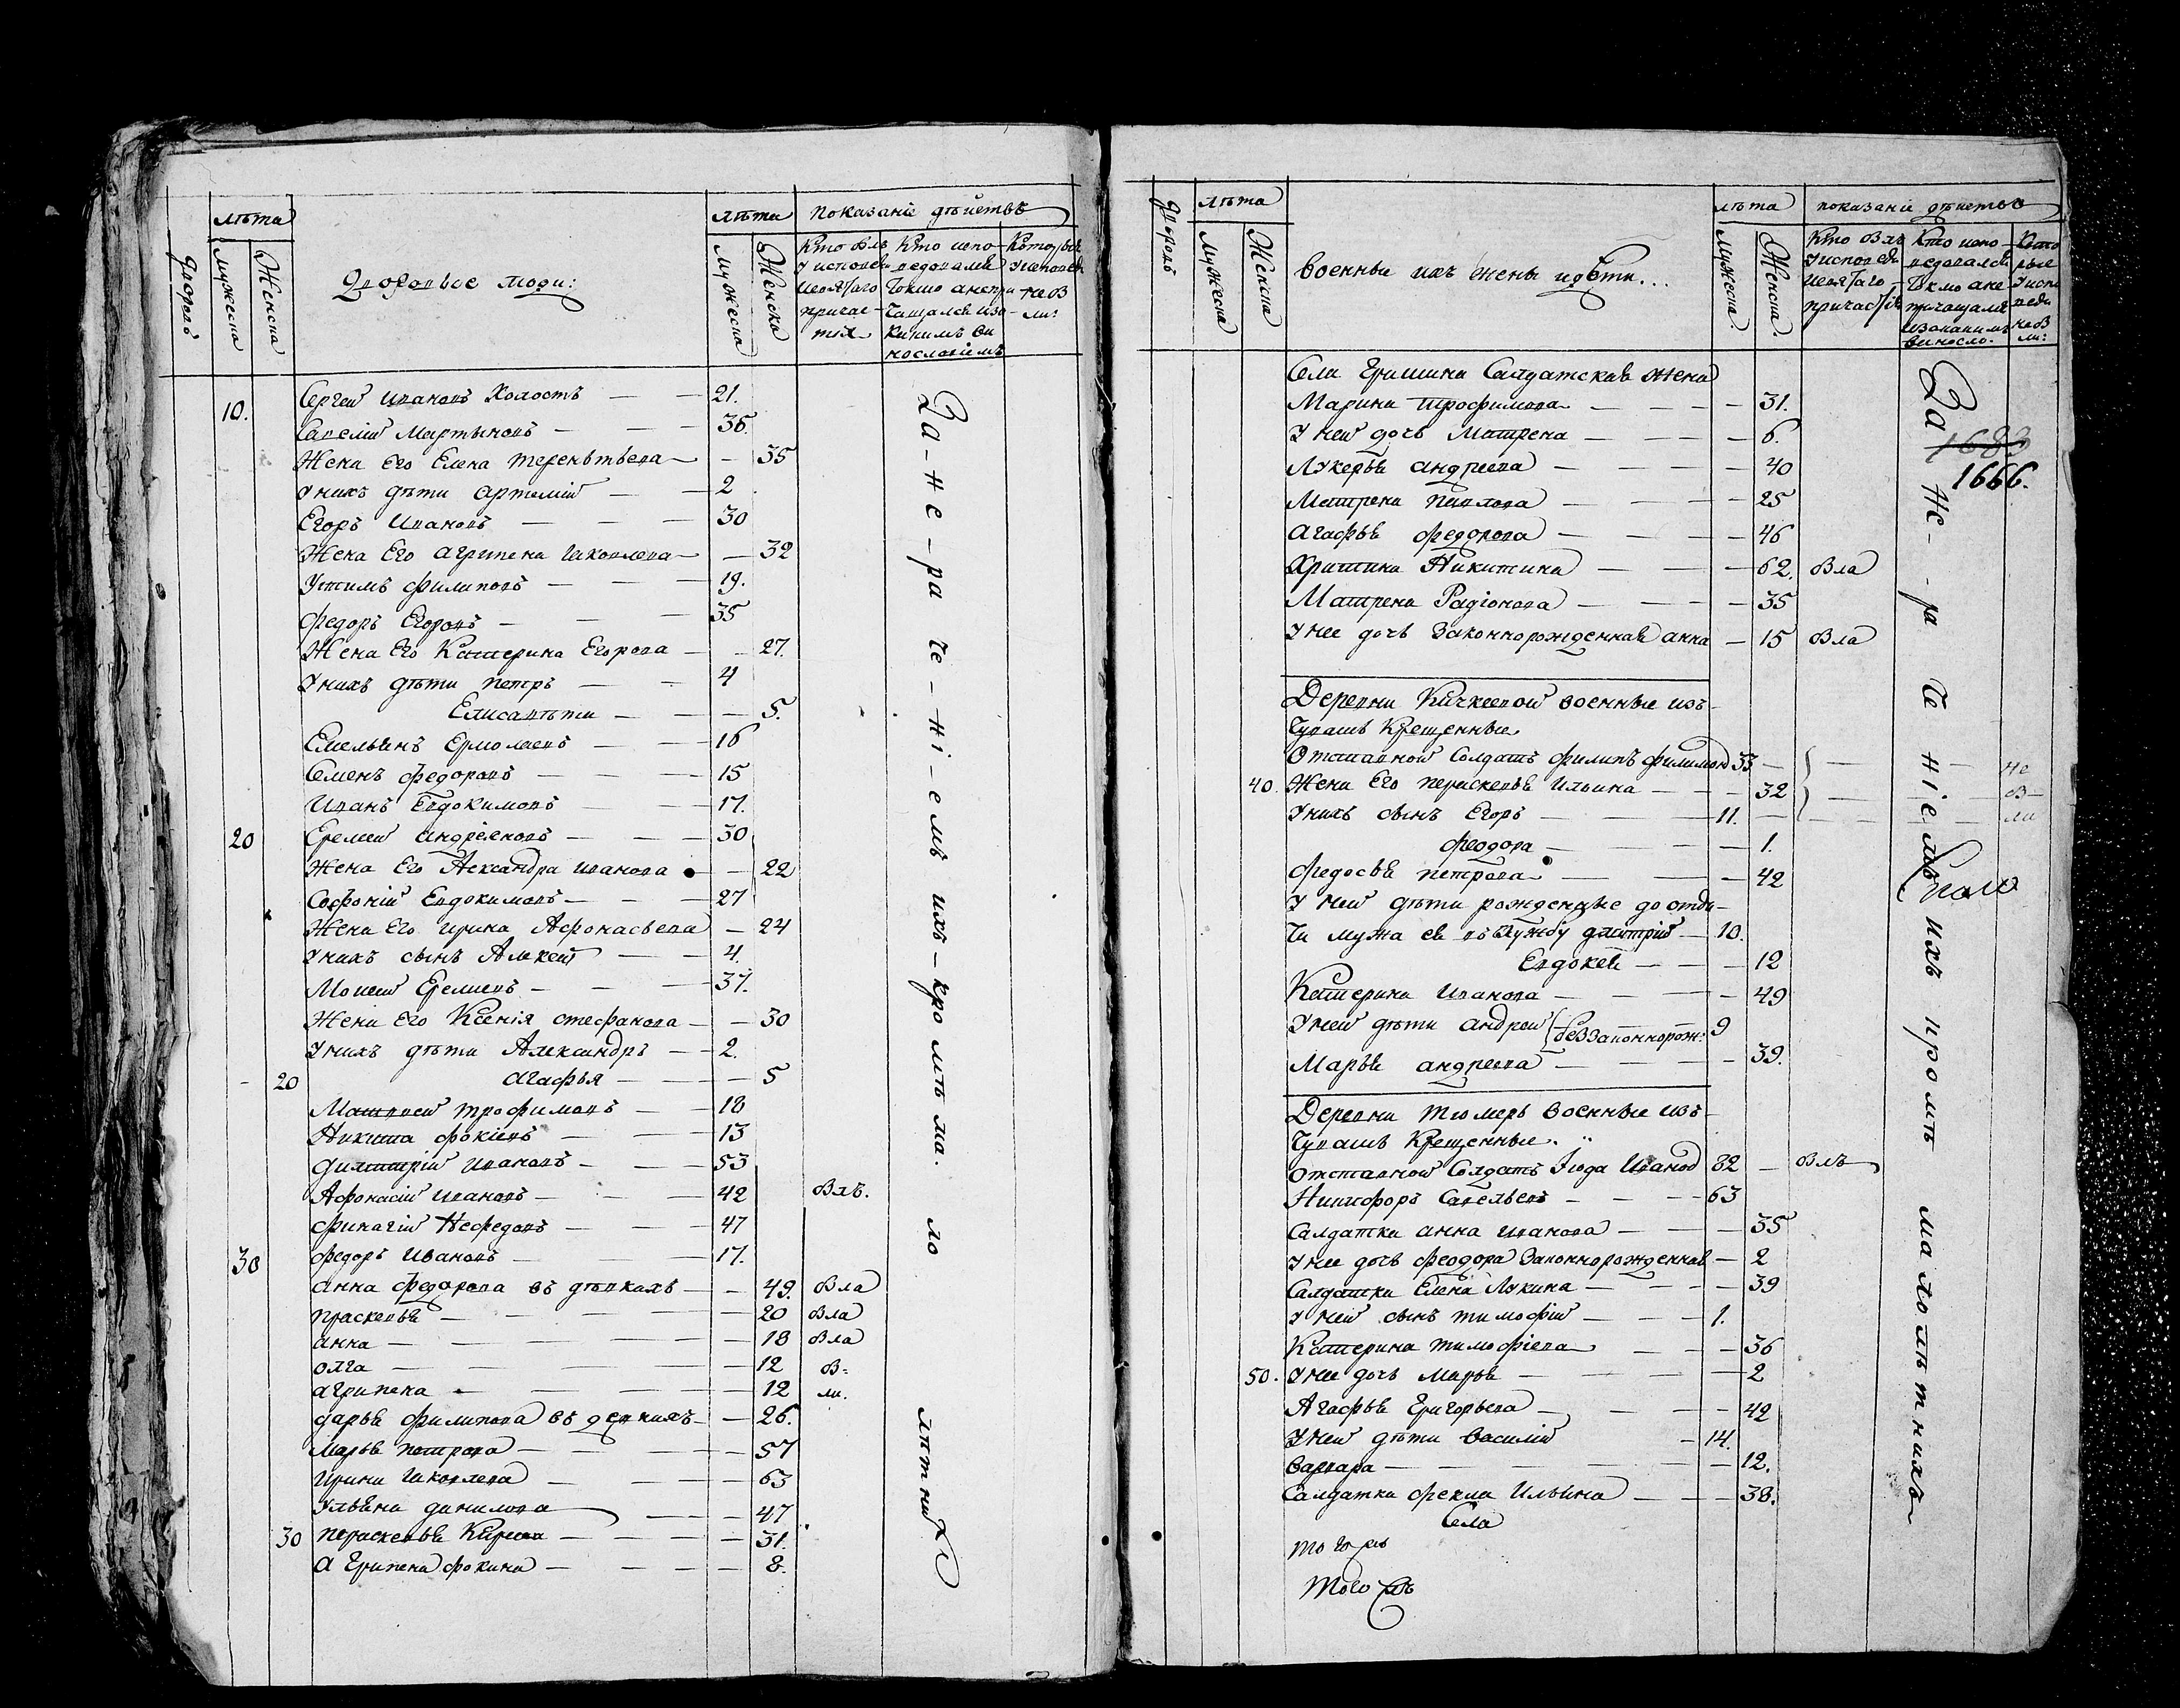 лѣта
лѣта показаніе дѣиствъ
дворовъ
мужеска
Женска
Дворовые люди:
мужеска
Женска
Кто былъ у исповеди и святаго причастія
Кто исповедовался токмо а не причащался и за какимъ винословіемъ
Которые у исповеди не были
10. Сергеи Ивановъ Холостъ — — 21.
Савелии Мартыновъ — — —
Жена Его Елена Терентьева — — 35
У нихъ дѣти Артемии — — 2
Егоръ Ивановъ — — — 30
Жена Его Агрипена Иаковлева — — 32
филиповъ — — — 19.
Федоръ Егоровъ — — — 35
Жена Его Катерина Егорова — — 27.
У нихъ дѣти Петръ — — 4
Елисавѣта — — — 5.
Емельянъ Ермолаевъ — — 16
Семенъ Федоровъ — — — 15
Иванъ Евдокимовъ — — 17.
20 Еремеи Андреяновъ — — — 30
Жена Его Александра Иванова — — 22
Софоніи Евдокимовъ — — — 27
Жена Его Ирина Афонасьева — 24
У нихъ сынъ Алексеи — — 4.
Моисеи Еремеевъ — — — 37.
Жена Его Ксенія Стефанова — — 30
У нихъ дѣти Александръ — — 2.
20 Агафья — — — 5
Матвеи Трофимовъ — — 18
Никита Фокіевъ — — — 13
Димитріи Ивановъ — — — 53
Афонасіи Ивановъ — — — 42 Былъ.
Нефедовъ — — — 47
30 Федоръ Ивановъ — — 17.
Анна Федорова въ дѣвкахъ — — 49. Была
Праскевья — — — 20 Была
Анна — — — — 18 Была
Олга — — — — 12 Бы-
Агрипена — — — — 12 ли.
Дарья Филипова въ девкахъ — — 26.
Марья Петрова — — — 57
Ирина Иаковлева — — — 63
Ульяна Данилова — — — 47
30 Параскевья — — — 31.
Агрипена Фокина — — — 8.
За-не-ра че-ні-емъ ихъ-кромѣ ма. ло лѣтних
лѣта
лѣта показаніе дѣиствъ
дворовъ
мужеска
Женска
Военные ихъ жены и дѣти...
мужеска.
Женска.
Кто былъ у исповеди и святаго причастія
Кто исповедовался токмо а не причащался и за какимъ виносло.
Которые у исповеди не были:
Села Гришина Салдатская жена
Марина Трофимова — — — — 31.
У неи дочь Матрена — — — — 6.
Лукерья Андреева — — — — 40
Матрена Павлова — — — 25
Агафья Федорова — — — — 46
Христина Никитина — — — 62. Была
Матрена Радіонова — — — 35
У нее дочь Законнорожденная Анна — 15 Была
1683
1666.
Деревни военные изъ
Чувашъ Крещенные
Отставнои Солдатъ Филипъ 33 — — — не
40. Жена Его Параскевья Ильина — — — 32 — — бы-
У нихъ сынъ Егоръ — — — 11. — — — ли
Феодора — — — — 1.
Федосья Петрова — — — 42
У неи дѣти рожденные до отда-
чи мужа ея въ службу Дмитріи — 10.
Евдокея — — — 12
Катерина Иванова — — — — 49
У неи дѣти Андреи беззаконнорож: 9
Марья Андреева — — — — 39.
Деревни Тюмеръ военные изъ-
Чувашъ Крещенные.
Отставнои Солдатъ Иуда Иванов 82 — Былъ
Никифоръ Савельевъ — — — 63
Салдатка Анна Иванова — — — 35
У нее дочь Феодора Законнорожденная — 2
Салдатка Елена Лукина — — — — 39
У неи сынъ Тимофіи — — — 1.
Катерина Тимофіева — — — 36
50. У нее дочь Марья — — — — 2
Агафья Григорьева — — — 42
У неи дѣти Василіи — 14.
Варвара — — — — — 12.
Салдатка Фекла Ильина — — — 38.
Села
За не-ра че ніемъ ихъ кромѣ малолѣтнихъ